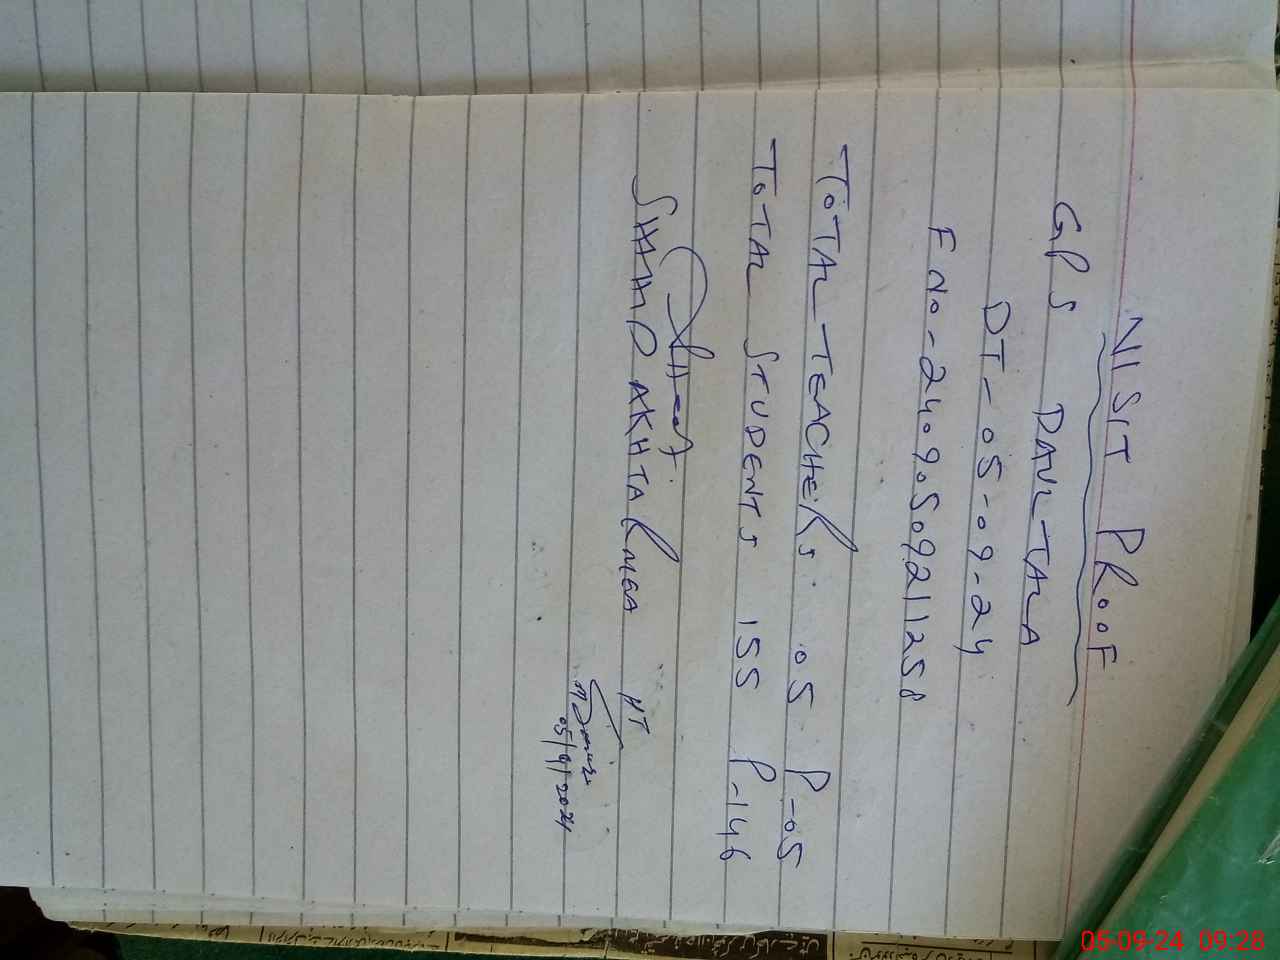 NISIT PROOF
GPS DAULTALA
DT-05-09-24
F No-24090509211258
TOTAL TEACHERS. 05 P-05
TOTAL STUDENTS 155 P-146
SHAHID AKHTAR MGA HT
05/9/2024
05-09-24 09:28